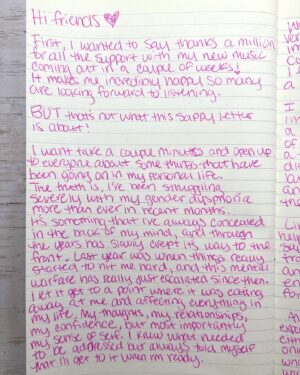 Hi friends
First, I wanted to say thanks a million
for all the support with my new music
coming out in a couple of weeks!
It makes me incredibly happy so many
are looking forward to listening.
BUT that's not what this sappy letter
is about!
I want take a couple minutes and open up
to everyone about some things that have
been going on in my personal life.
The truth is, I've been struggling
severely with my gender dysphoria
more than ever in recent months.
It's something that I've always concealed
in the back of my mind, and through
the years has slowly crept its way to the
front. Last year was when things really
started to hit me hard, and this mental
warfare has really just escalated since then.
I let it get to a point where it was eating
away at me and affecting everything in
my life, my thoughts, my relationships,
my confidence, but most importantly
my sense of self. I knew what needed
to be addressed but always told myself
that I'll get to it when I'm ready.